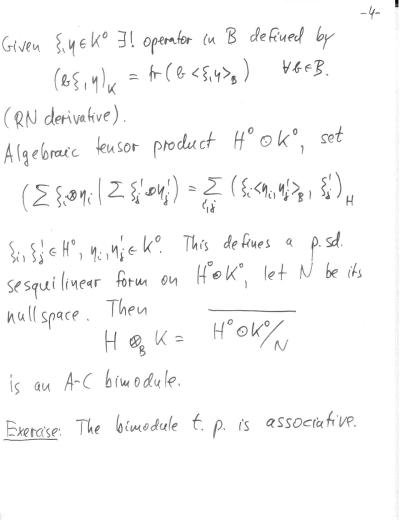 -4-
Given ξ,η ∈ K° ∃! operator in B defined by
(bξ, η)_K = tr(b <ξ,η>_B) ∀b∈B.
(RN derivative).
Algebraic tensor product H° ⊙ K°, set
(Σ ξ_i⊗η_i | Σ ξ'_j⊗η'_j) = Σ_{i,j} (ξ_i<η_i,η'_j>_B, ξ'_j)_H
ξ_i, ξ'_j ∈ H°, η_i, η'_j ∈ K°. This defines a p.sd.
sesquilinear form on H°⊙K°, let N be its
nullspace. Then
H ⊗_B K = \overline{H°⊙K°/N}
is an A-C bimodule.
Exercise: The bimodule t. p. is associative.